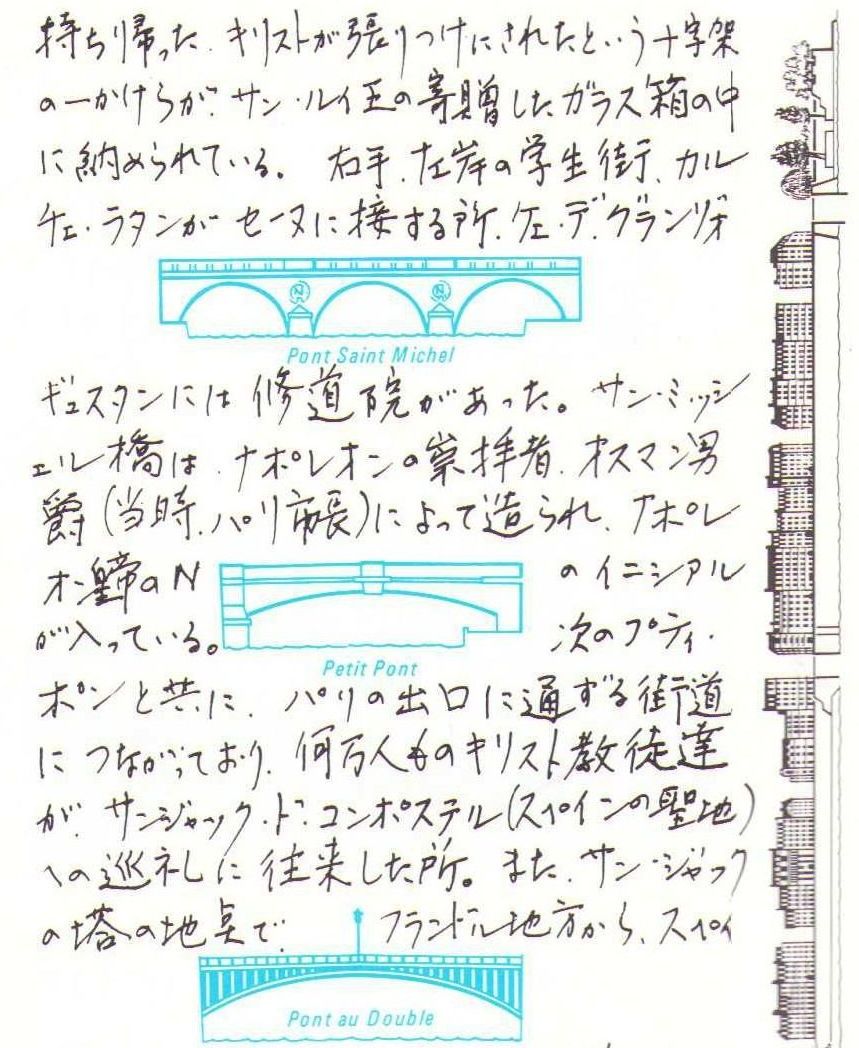 持ち帰った、キリストが張りつけにされたという十字架
の一かけらが、サン・ルイ王の寄贈したガラス箱の中
に納められている。 右手、左岸の学生街、カル
チェ・ラタンがセーヌに接する所、ケ・デ・グランゾォ
Pont Saint Michel
ギュスタンには修道院があった。サン・ミッシ
ェル橋は、ナポレオンの崇拝者、オスマン男
爵(当時、パリ市長)によって造られ、ナポレ
オン皇帝のN のイニシアル
が入っている。 次のプティ・
Petit Pont
ポンと共に、パリの出口に通ずる街道
につながっており、何万人ものキリスト教徒達
が、サンジャック・ド・コンポステル(スペインの聖地)
への巡礼に往来した所。また、サン・ジャック
の塔の地点で、 フランドル地方から、スペイ
Pont au Double